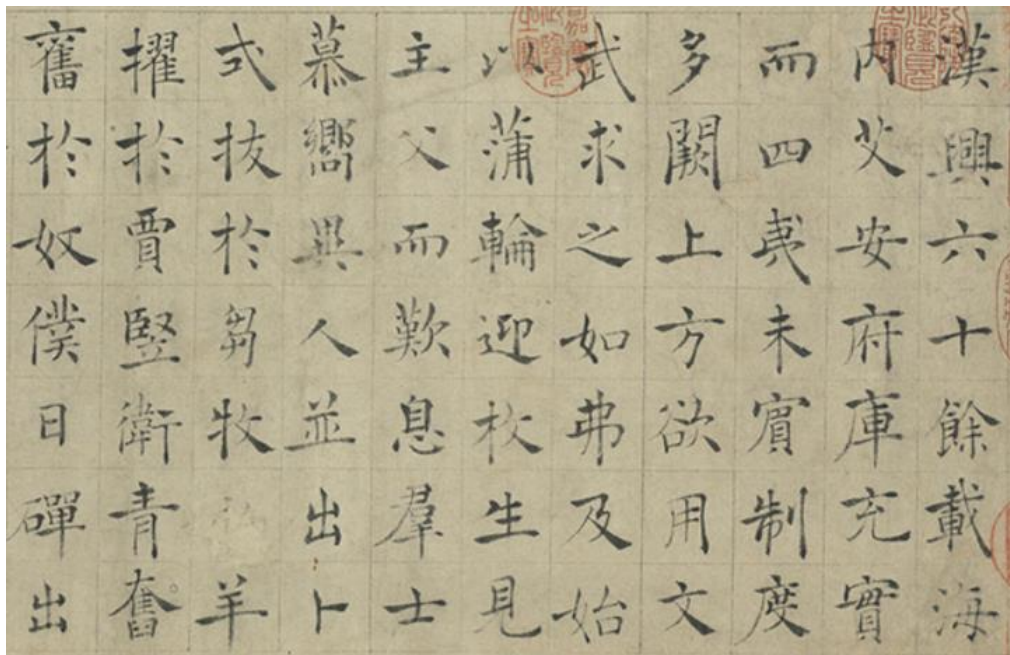 漢興六十餘載海
内艾安府庫充實
而四夷未賓制度
多闕上方欲用文
武求之如弗及始
以蒲輪迎枚生見
主父而歎息羣士
慕嚮異人並出卜
式拔於芻牧弘羊
擢於賈豎衛青奮
舊於奴僕日磾出